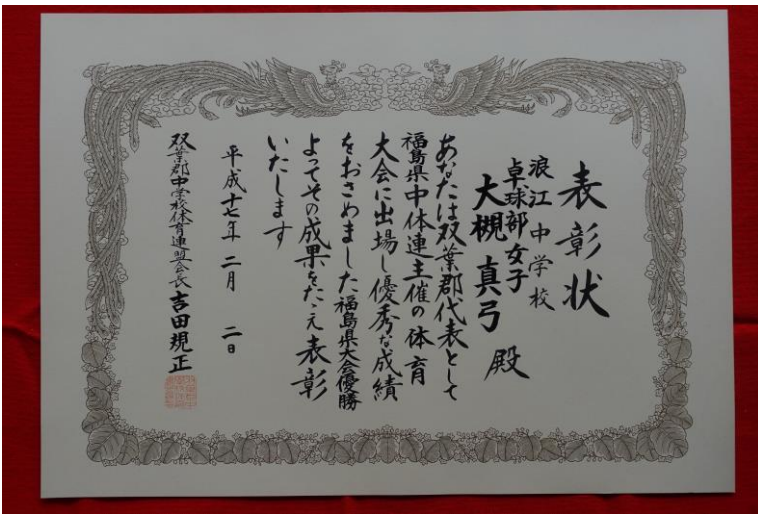 表彰状
浪江中学校
卓球部女子
大槻真弓殿
あなたは双葉郡代表として
福島県中体連主催の体育
大会に出場し優秀な成績
をおさめました福島県大会優勝
よってその成果をたゝえ表彰
いたします
平成十七年二月二日
双葉郡中学校体育連盟会長吉田規正